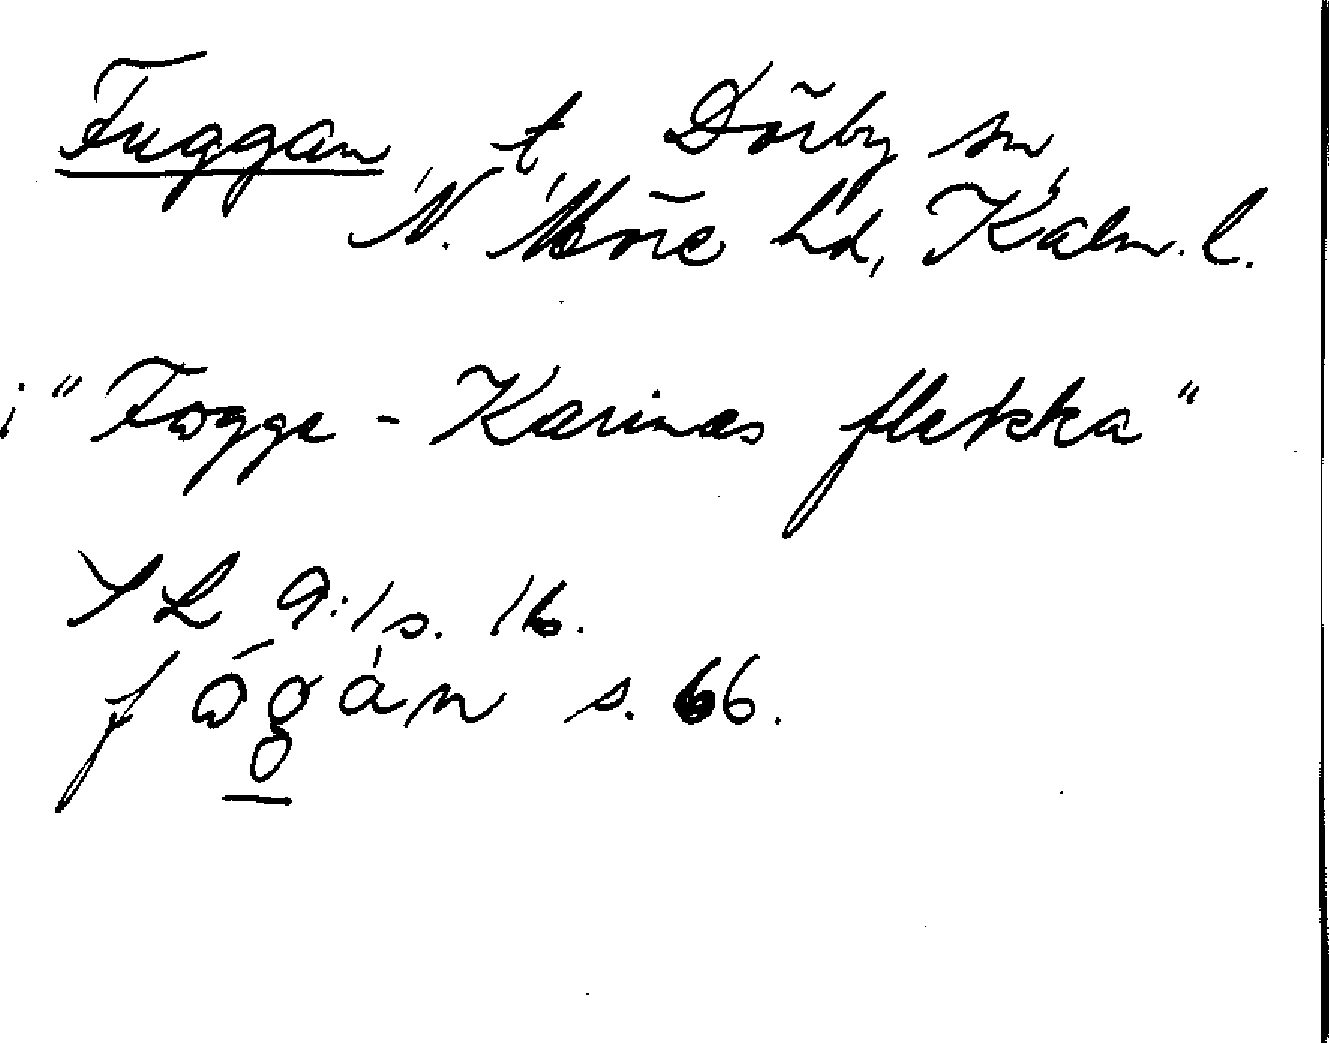 Fuggan, t, Dörby sn,
N. Möre hd, Kalm. l.
i "Fogge-Karinas flekka"
SL 9:1 s. 16.
fógàn s. 66.